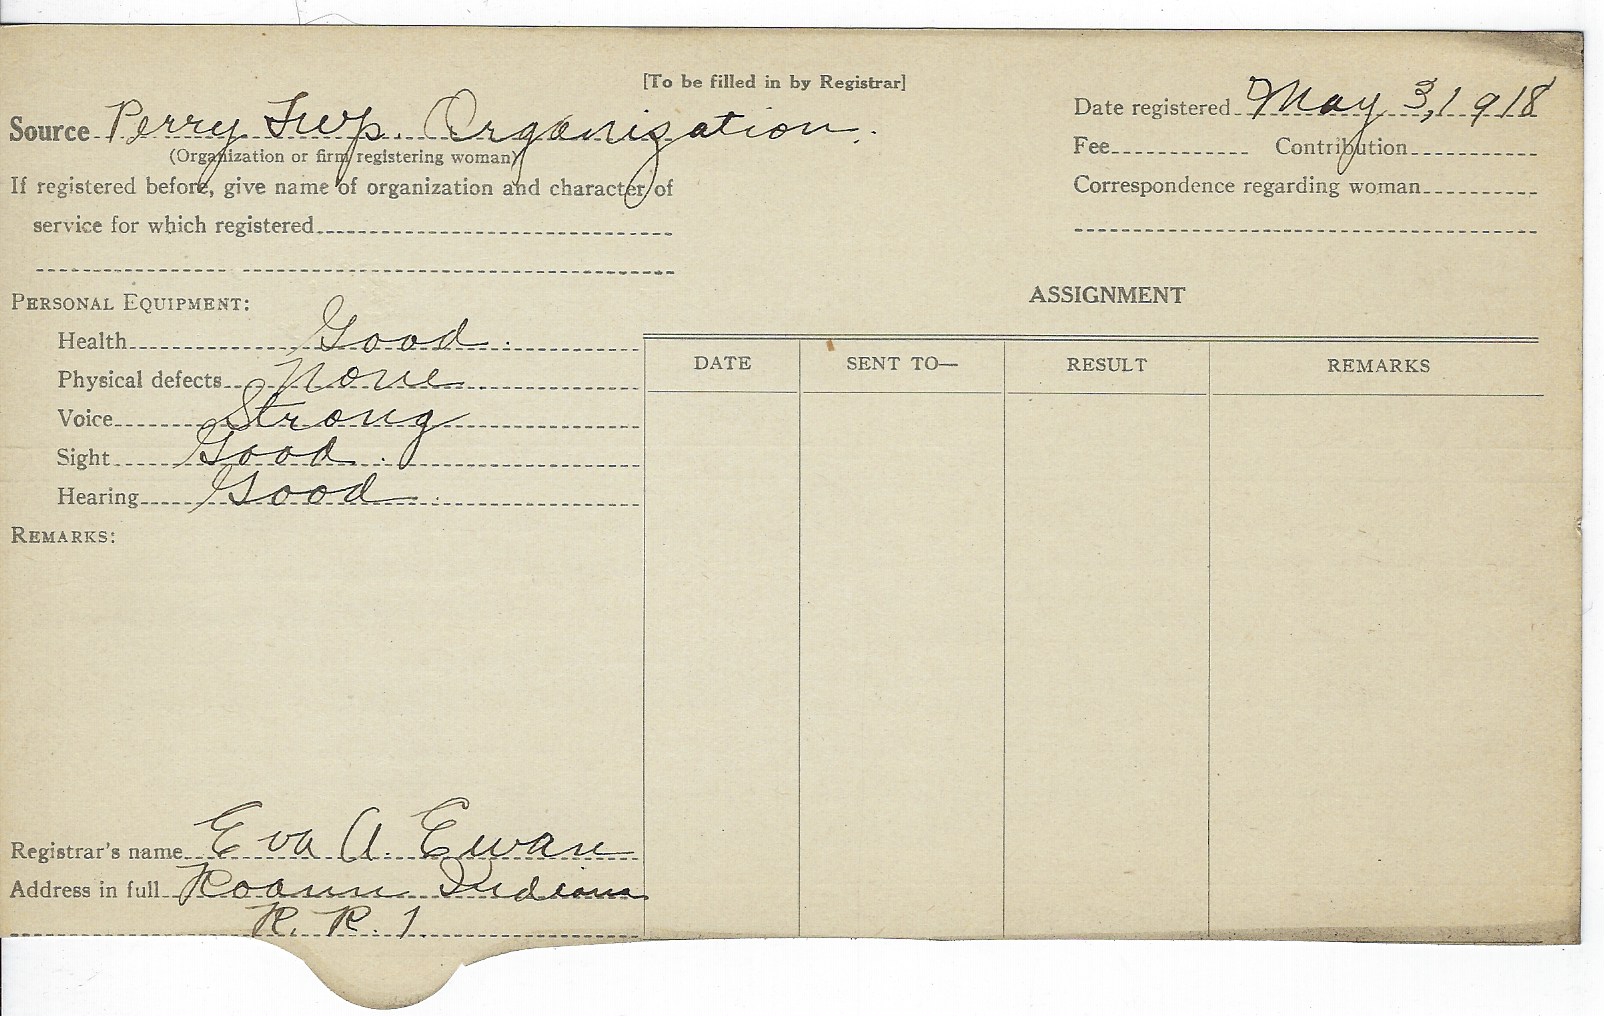 [To be filled in by Registrar]
Source Perry Twp. Organization.
(Organization or firm registering woman)
If registered before, give name of organization and character of
service for which registered
Date registered May 3, 1918
Fee Contribution
Correspondence regarding woman
PERSONAL EQUIPMENT:
Health Good.
Physical defects None
Voice Strong
Sight Good.
Hearing Good.
REMARKS:
ASSIGNMENT
DATE SENT TO— RESULT REMARKS
Registrar's name Eva A. Ewan
Address in full Roann Indiana
R. R. 1.